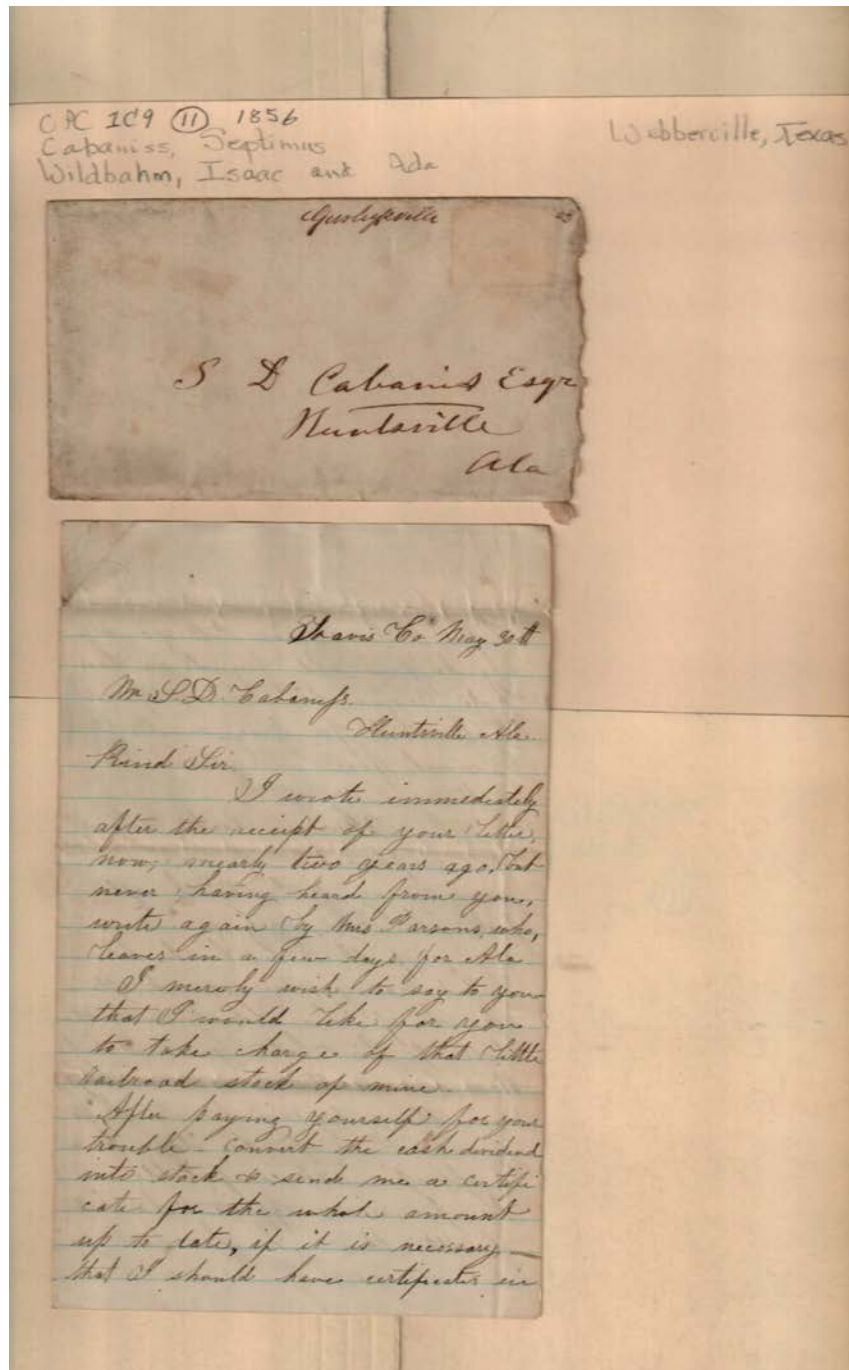 CAC 1C9 (11) 1856
Cabaniss, Septimus
Wildbahm, Isaac and Ada
Webberville, Texas
Gurleysville
S D Cabaniss Esqr
Huntsville
Ala
Travis Co May 30th
Mr S D Cabaniss.
Huntsville Ala
Kind Sir
I wrote immediately
after the receipt of your letter,
now, nearly two years ago. but
never having heard from you,
write again by Mrs Parsons, who,
leaves in a few days for Ala
I merely wish to say to you
that I would like for you
to take charge of that little
Railroad stock of mine.
After paying yourself for your
trouble - convert the cash dividend
into stock & send me a certifi
cate for the whole amount
up to date, if it is necessary —
that I should have certificates in